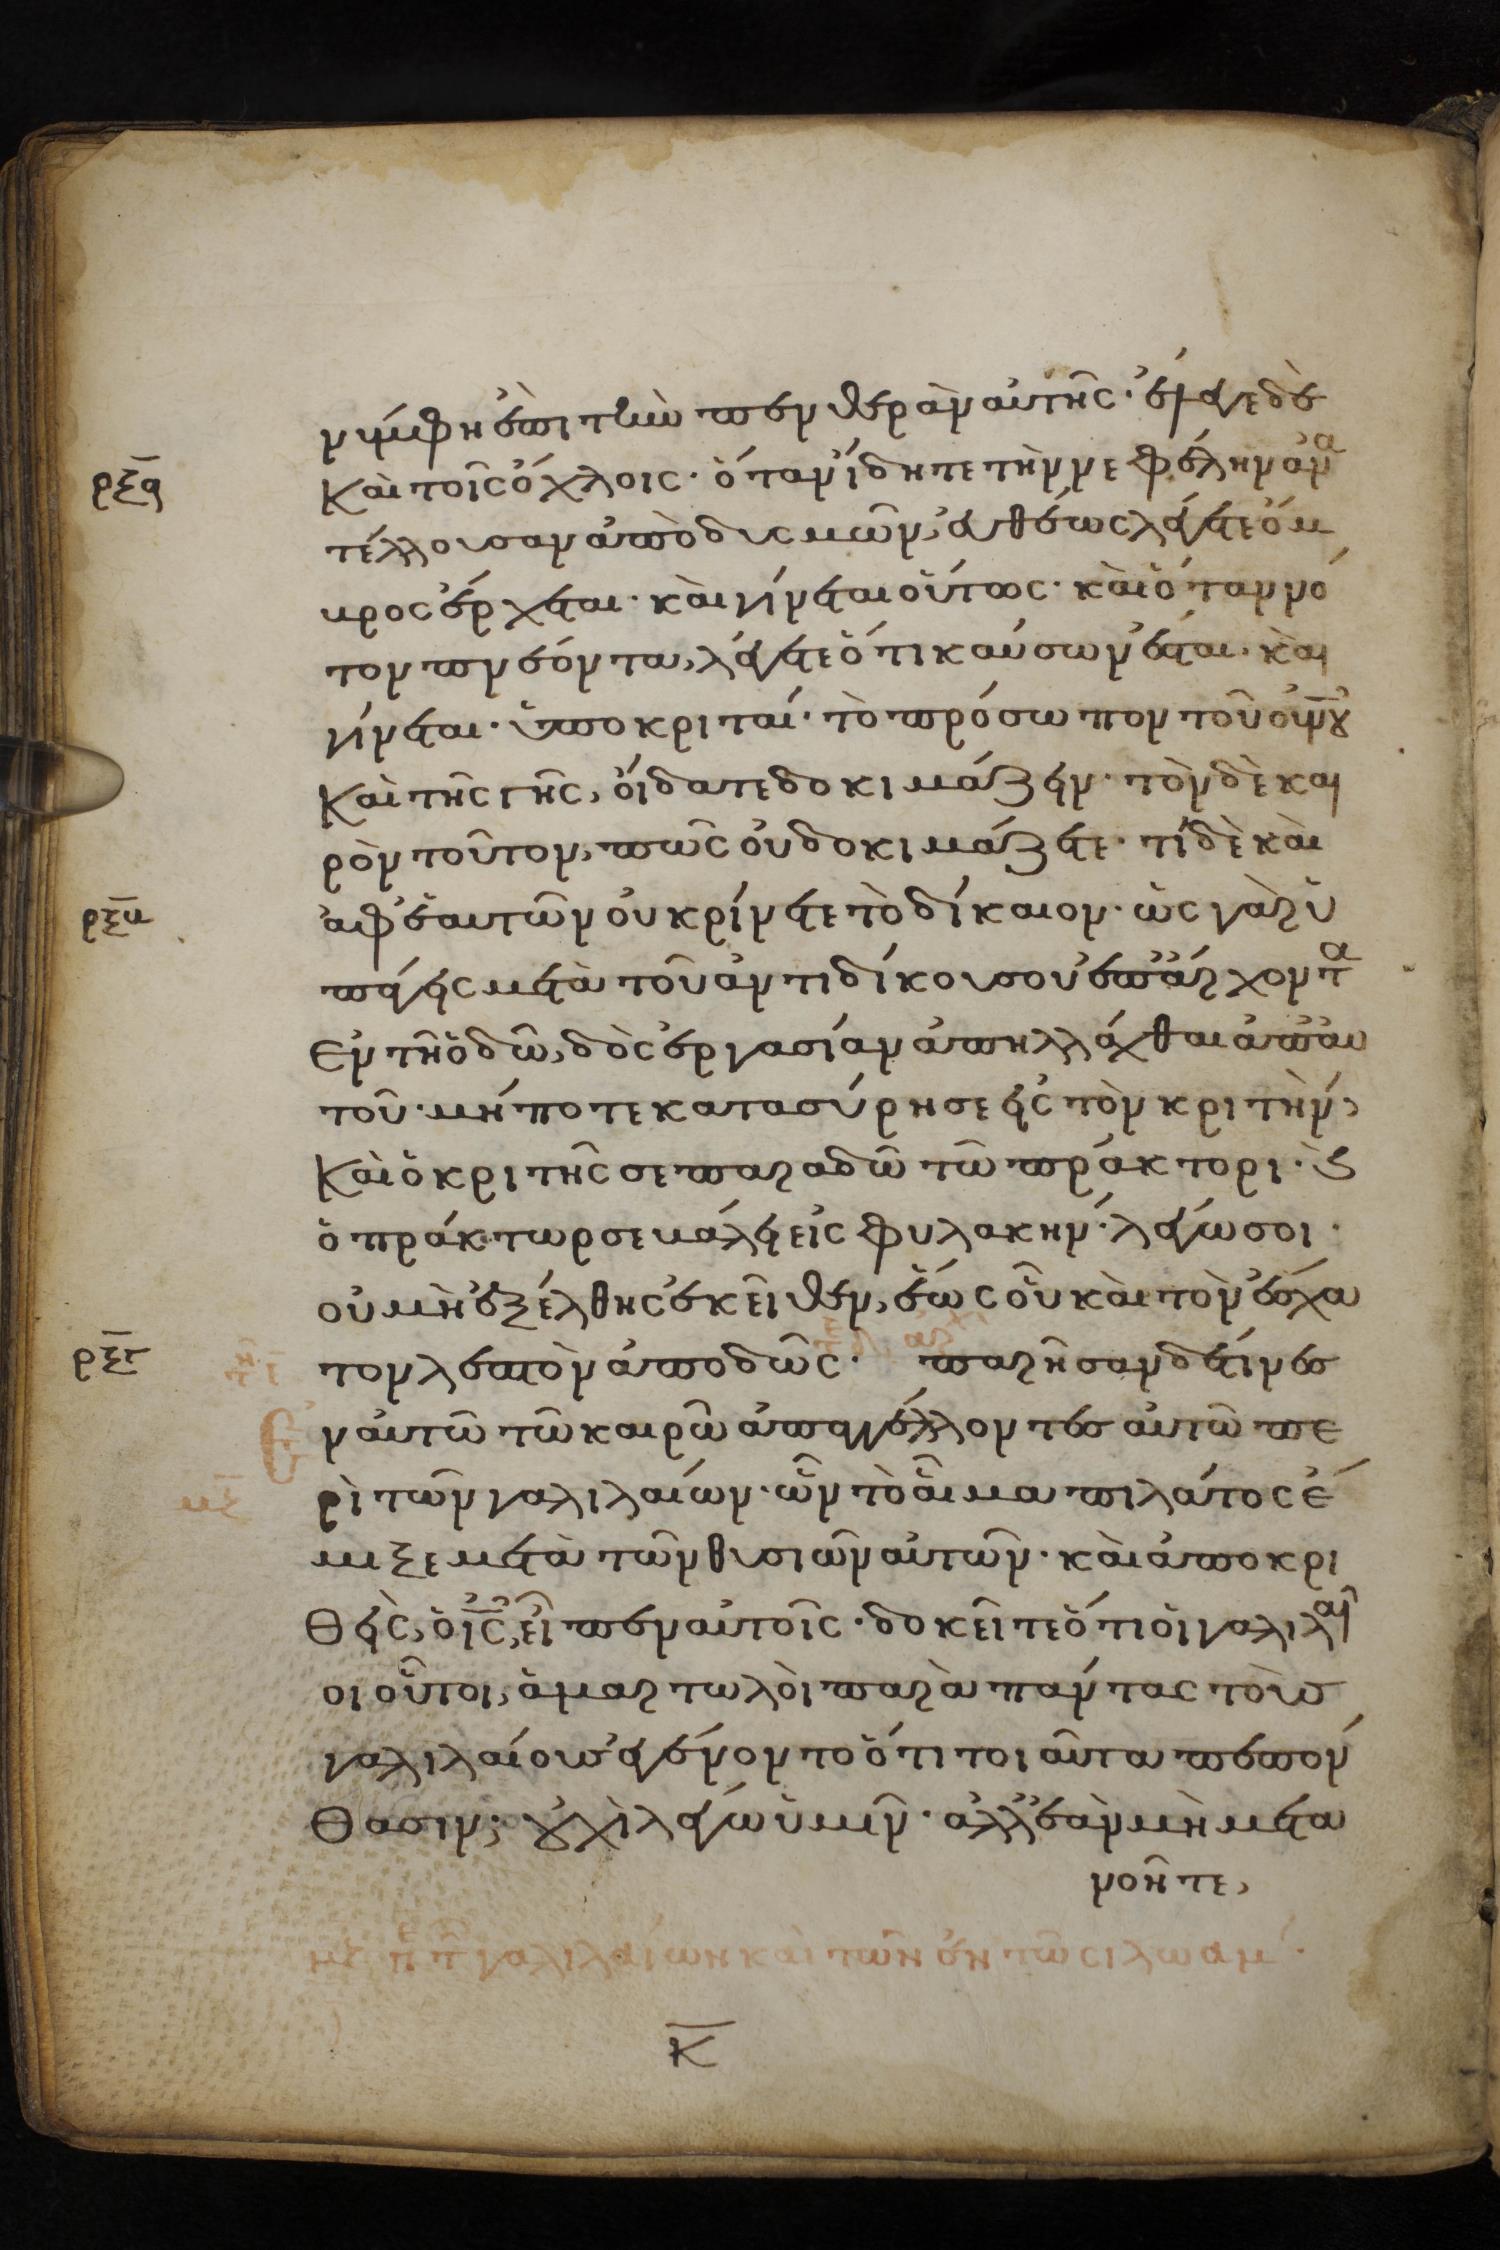 νύμφη ἐπὶ τὴν πενθερὰν αὐτῆς· ἔλεγε δὲ
ρξα
καὶ τοῖς ὄχλοις· ὅταν ἴδητε τὴν νεφέλην ἀνα
τέλλουσαν ἀπὸ δυσμῶν, εὐθέως λέγετε ὄμ
βρος ἔρχεται· καὶ γίνεται οὕτως· καὶ ὅταν νό
τον πνέοντα, λέγετε ὅτι καύσων ἔσται· καὶ
γίνεται· ὑποκριταί· τὸ πρόσωπον τοῦ οὐνοῦ
καὶ τῆς γῆς, οἴδατε δοκιμάζειν· τὸν δὲ και
ρὸν τοῦτον, πῶς οὐ δοκιμάζετε· τί δὲ καὶ
ρξβ
ἀφ' ἑαυτῶν οὐ κρίνετε τὸ δίκαιον· ὡς γὰρ ὑ
πάγεις μετὰ τοῦ ἀντιδίκου σου ἐπ' ἄρχοντα
ἐν τῇ ὁδῷ, δὸς ἐργασίαν ἀπηλλάχθαι ἀπ' αὐ
τοῦ· μήποτε κατασύρῃ σε εἰς τὸν κριτὴν,
καὶ ὁ κριτής σε παραδῷ τῷ πράκτορι· καὶ
ὁ πράκτωρ σε βάλῃ εἰς φυλακήν· λέγω σοι·
οὐ μὴ ἐξέλθῃς ἐκεῖθεν, ἕως οὗ καὶ τὸν ἔσχα
ρξγ
τον λεπτὸν ἀποδῷς· παρῆσαν δέ τινες
ἐν αὐτῷ τῷ καιρῷ ἀπαγγέλλοντες αὐτῷ πε
ρὶ τῶν γαλιλαίων· ὧν τὸ αἷμα πιλάτος ἔ
μιξε μετὰ τῶν θυσιῶν αὐτῶν· καὶ ἀποκρι
θεὶς, ὁ ις, εἶπεν αὐτοῖς· δοκεῖτε ὅτι οἱ γαλιλαῖ
οι οὗτοι, ἁμαρτωλοὶ παρὰ πάντας τοὺς
γαλιλαίους ἐγένοντο ὅτι τοιαῦτα πεπόν
θασιν; οὐχὶ λέγω ὑμῖν· ἀλλ' ἐὰν μὴ μετα
νοῆτε,
γαλιλαίων καὶ τῶν ἐν τῷ σιλωάμ·
κ